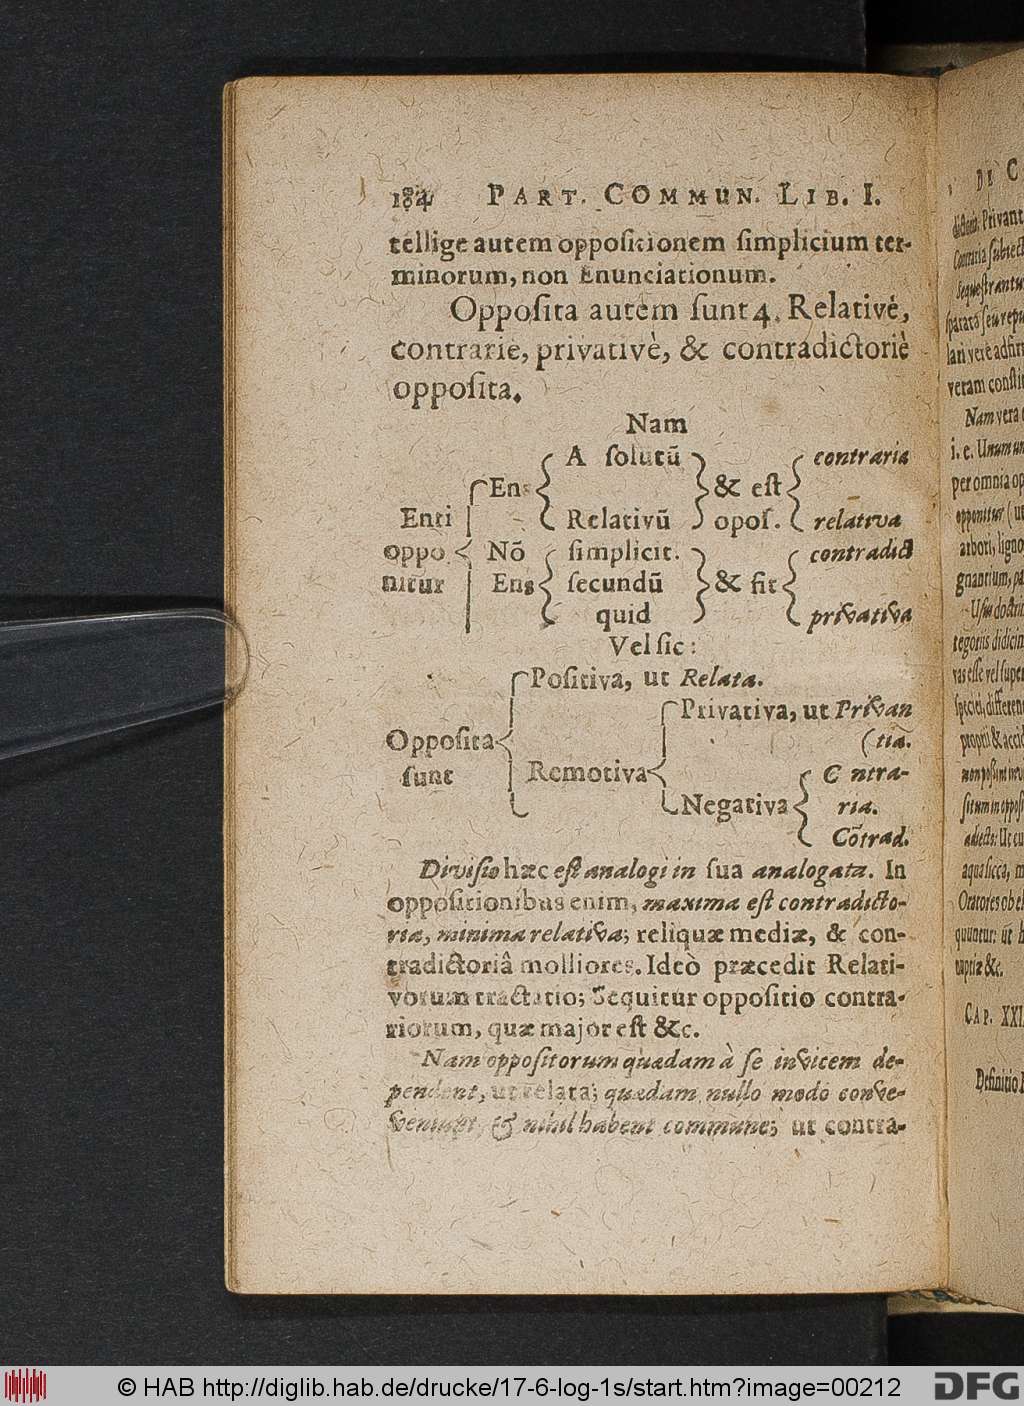 184 PART. COMMUN. LIB. I.
tellige autem oppositionem simplicium ter-
minorum, non Enunciationum.
Opposita autem sunt 4. Relativè,
contrarie, privativè, & contradictoriè
opposita.
Nam
A solutũ contraria
Ens & est
Enti Relativũ opos. relativa
oppo Nõ simplicit. contradict
nitur Ens secundũ & fit
quid privativa
Vel sic:
Positiva, ut Relata.
Privativa, ut Privan
Opposita (tia.
sunt Remotiva C ntra-
Negativa ria.
Cõtrad.
Divisio hæc est analogi in sua analogata. In
oppositionibus enim, maxima est contradicto-
ria, minima relativa; reliquæ mediæ, & con-
tradictoriâ molliores. Ideò præcedit Relati-
vorum tractatio; Sequitur oppositio contra-
riorum, quæ major est &c.
Nam oppositorum quædam à se invicem de-
pendent, ut relata; quædam nullo modo conve-
veniunt, & nihil habent commune; ut contra-
DE C
Privant
Contraria subiect
sequestrantu
sparata seu repu
lari vere adfir
veram constit
Nam vera
i. e. Unum un
per omnia op
opponitur (ut
arbori, ligno
gnantium, pa
Usus doctri
tegoriis didicin
vas esse vel super
speciei, differen
proprii & accid
non possunt
situm in opposi
adiecto: Ut cu
aqua sicca, m
Oratores ob el
quuntur: ut h
nuptiæ &c.
CAP. XXI
Definitio
© HAB http://diglib.hab.de/drucke/17-6-log-1s/start.htm?image=00212
DFG